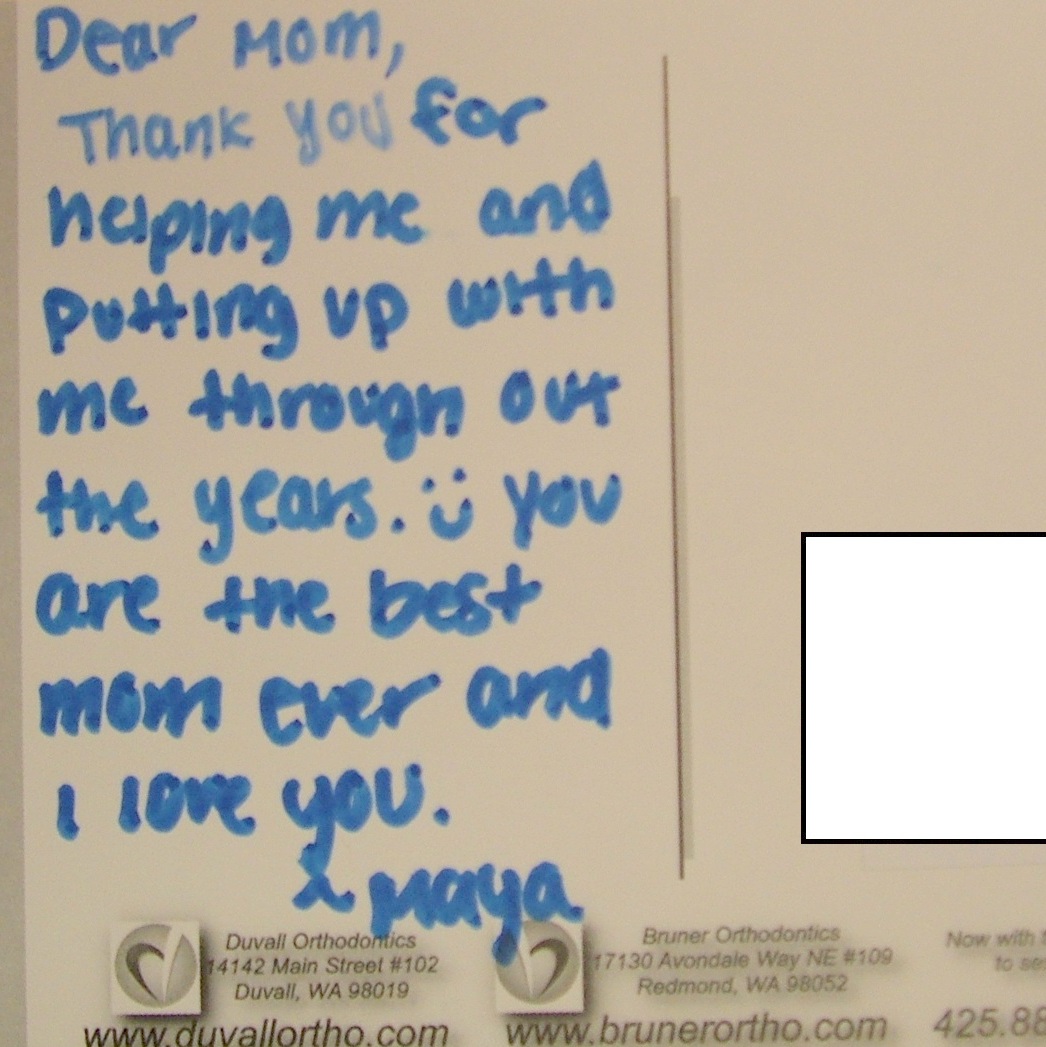 Dear Mom,
Thank you for
helping me and
putting up with
me through out
the years. :) you
are the best
mom ever and
I love you.
Maya
Duvall Orthodontics
14142 Main Street #102
Duvall, WA 98019
www.duvallortho.com
Bruner Orthodontics
17130 Avondale Way NE #109
Redmond, WA 98052
www.brunerortho.com
Now with
to se
425.88